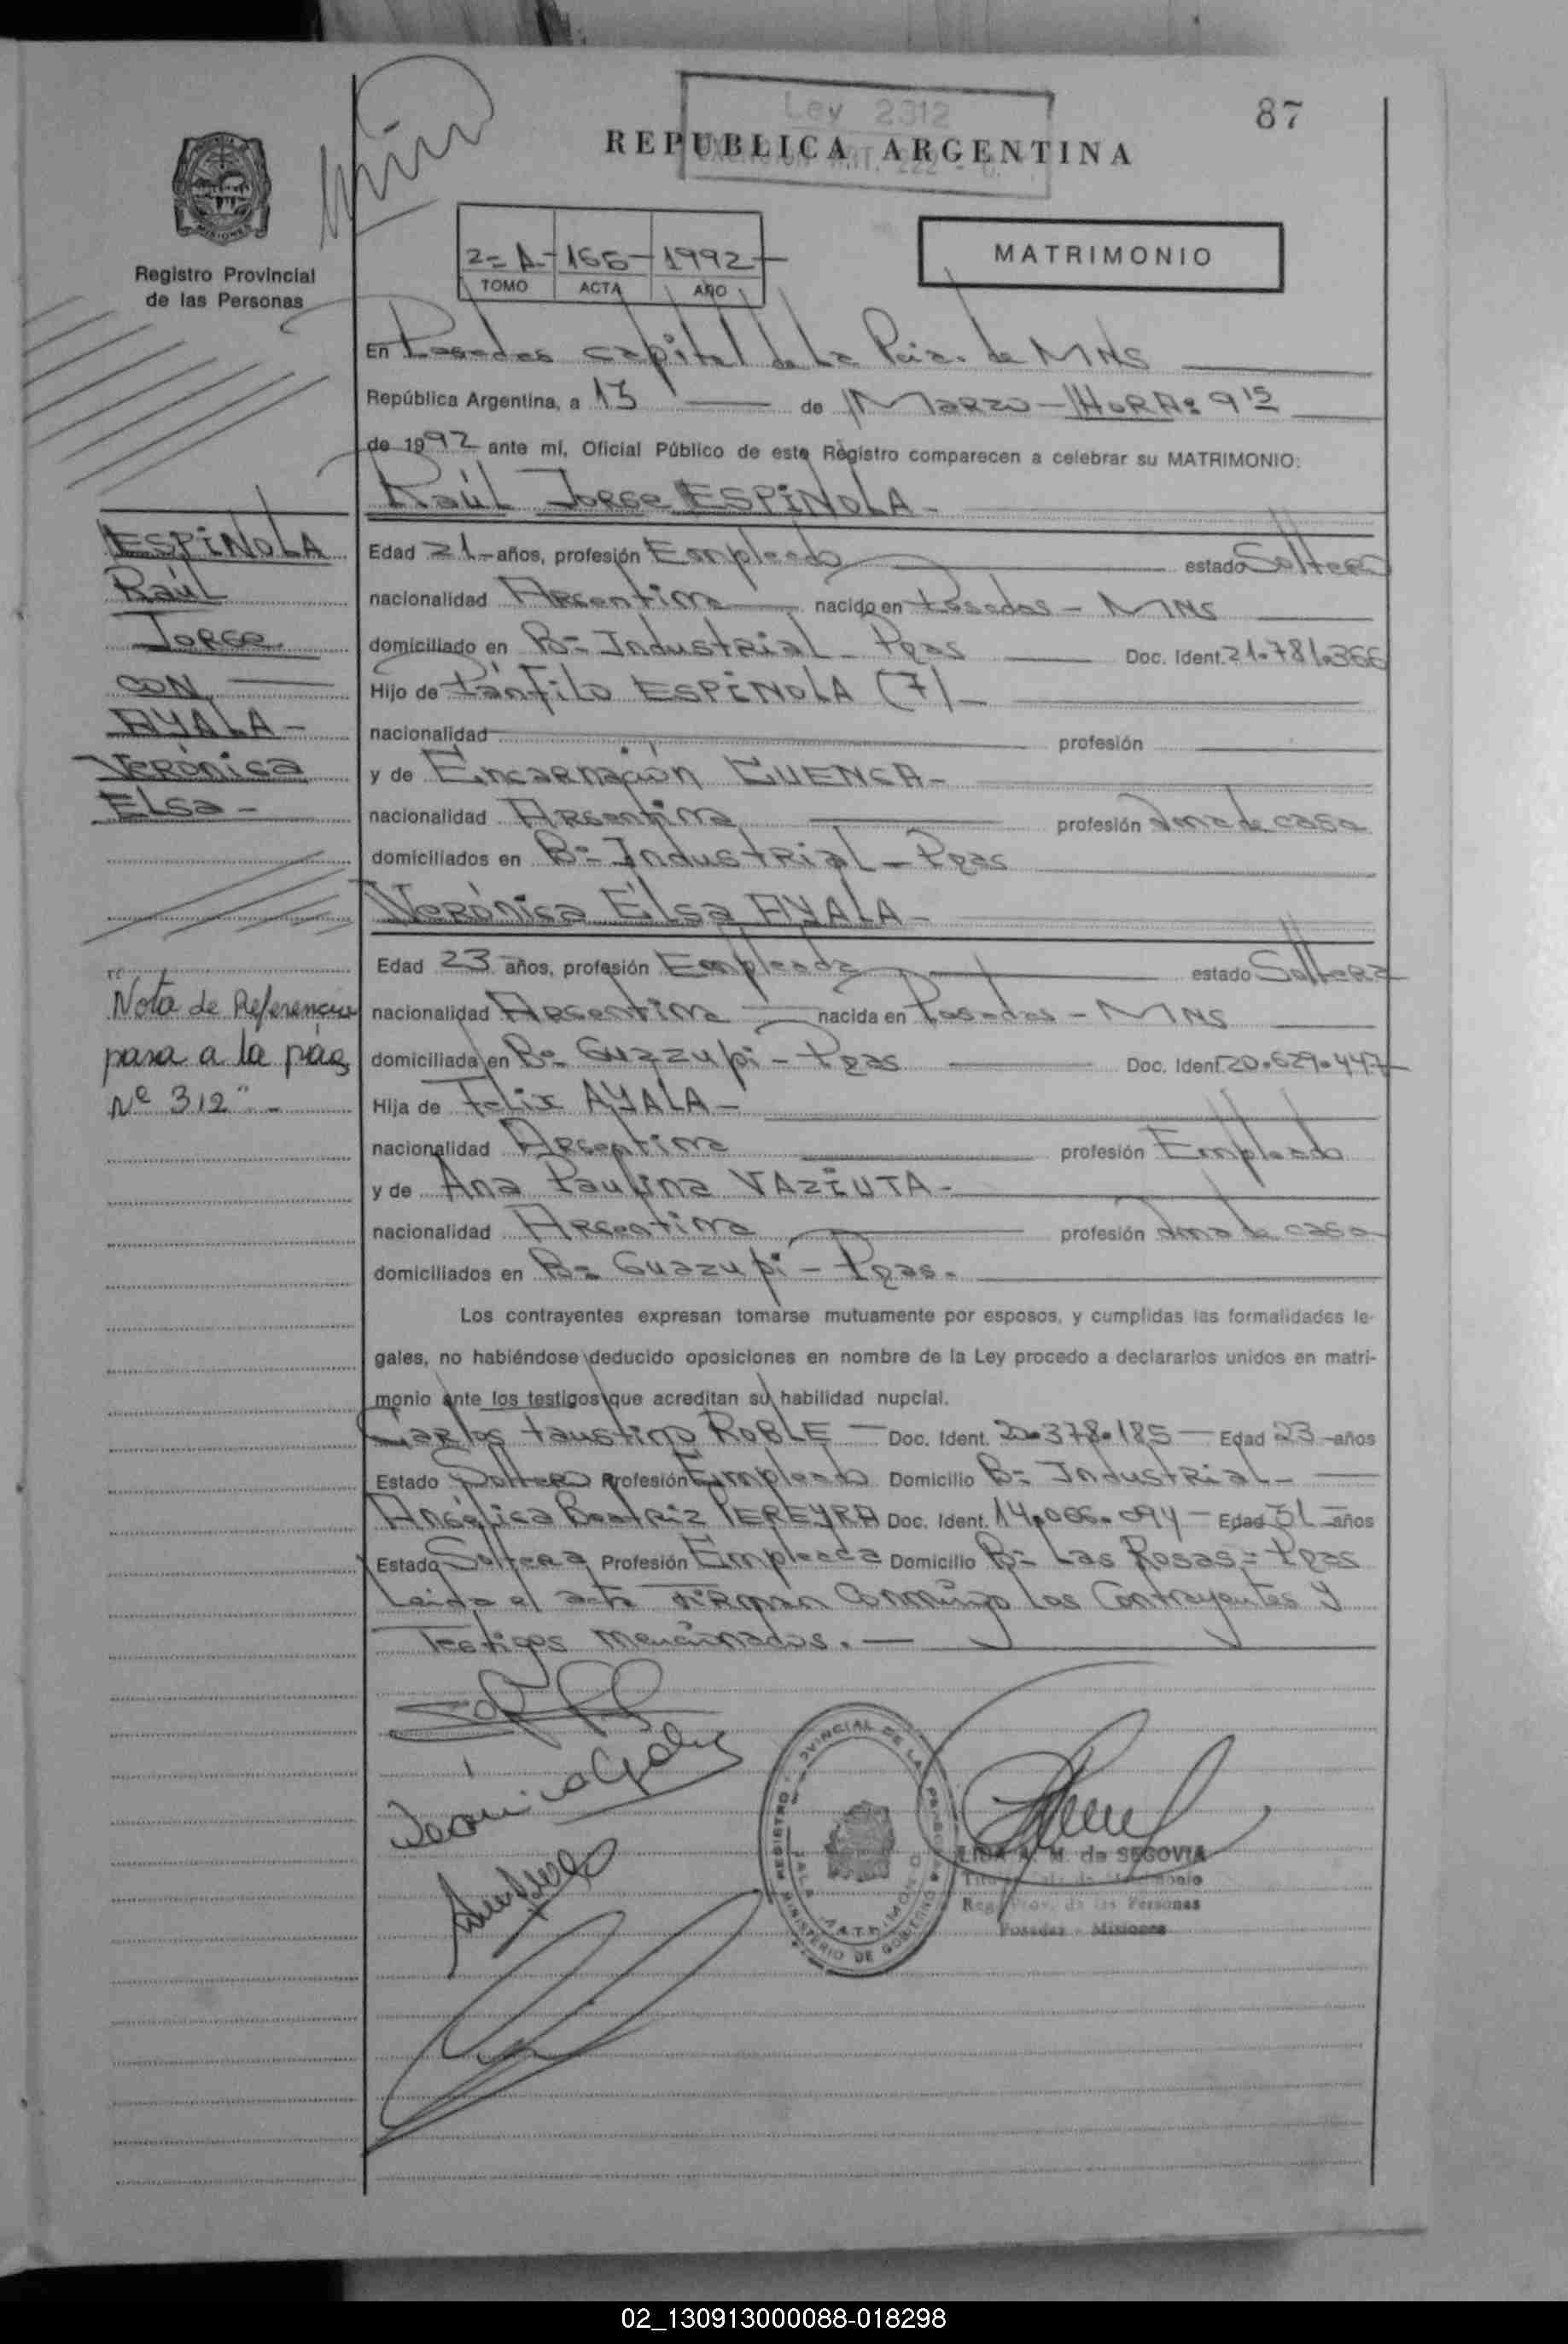 87
Ley 2312
REPUBLICA ARGENTINA
MISIONES
Registro Provincial
de las Personas
2=A- 166- 1992-
TOMO ACTA AÑO
MATRIMONIO
En Posadas capital de La Pcia. de MNS
República Argentina, a 13 de Marzo - HORA: 9 15
de 1992 ante mí, Oficial Público de este Registro comparecen a celebrar su MATRIMONIO:
Raúl Jorge ESPINOLA-
Edad 21- años, profesión Empleado estado Soltero
nacionalidad Argentina nacido en Posadas - MNS
domiciliado en B= Industrial - Pdas Doc. Ident. 21.781.366
Hijo de Pánfilo ESPINOLA (7)-
nacionalidad profesión
y de Encarnación CUENCA-
nacionalidad Argentina profesión Ama de casa
domiciliados en B= Industrial - Pdas
Verónica Elsa AYALA-
Edad 23 años, profesión Empleada estado Soltera
nacionalidad Argentina nacida en Posadas - MNS
domiciliada en B= Guazupi - Pdas Doc. Ident. 20.629.447-
Hija de Felix AYALA-
nacionalidad Argentina profesión Empleado
y de Ana Paulina
nacionalidad Argentina profesión Ama de casa
domiciliados en B= Guazupi - Pdas.
Los contrayentes expresan tomarse mutuamente por esposos, y cumplidas las formalidades le-
gales, no habiéndose deducido oposiciones en nombre de la Ley procedo a declararlos unidos en matri-
monio ante los testigos que acreditan su habilidad nupcial.
Carlos Faustino ROBLE - Doc. Ident. 20.378.185 - Edad 23 -años
Estado Soltero Profesión Empleado Domicilio B= Industrial-
Angélica Beatriz PEREYRA Doc. Ident. 14.006.094 - Edad 31 - años
Estado Soltera Profesión Empleada Domicilio B= Las Rosas = Pdas
Leida el acta Firman Conmigo Los Contrayentes y
Testigos mencionados.-
ESPINOLA
Raúl
Jorge
CON
AYALA-
Verónica
Elsa-
"
Nota de Referencia
pasa a la pág
Nº 312"-
REGISTRO PROVINCIAL DE LAS PERSONAS
MINISTERIO DE GOBIERNO
MATRIMONIO
de SEGOVIA
Reg. Prov. de las Personas
Posadas - Misiones
02_130913000088-018298